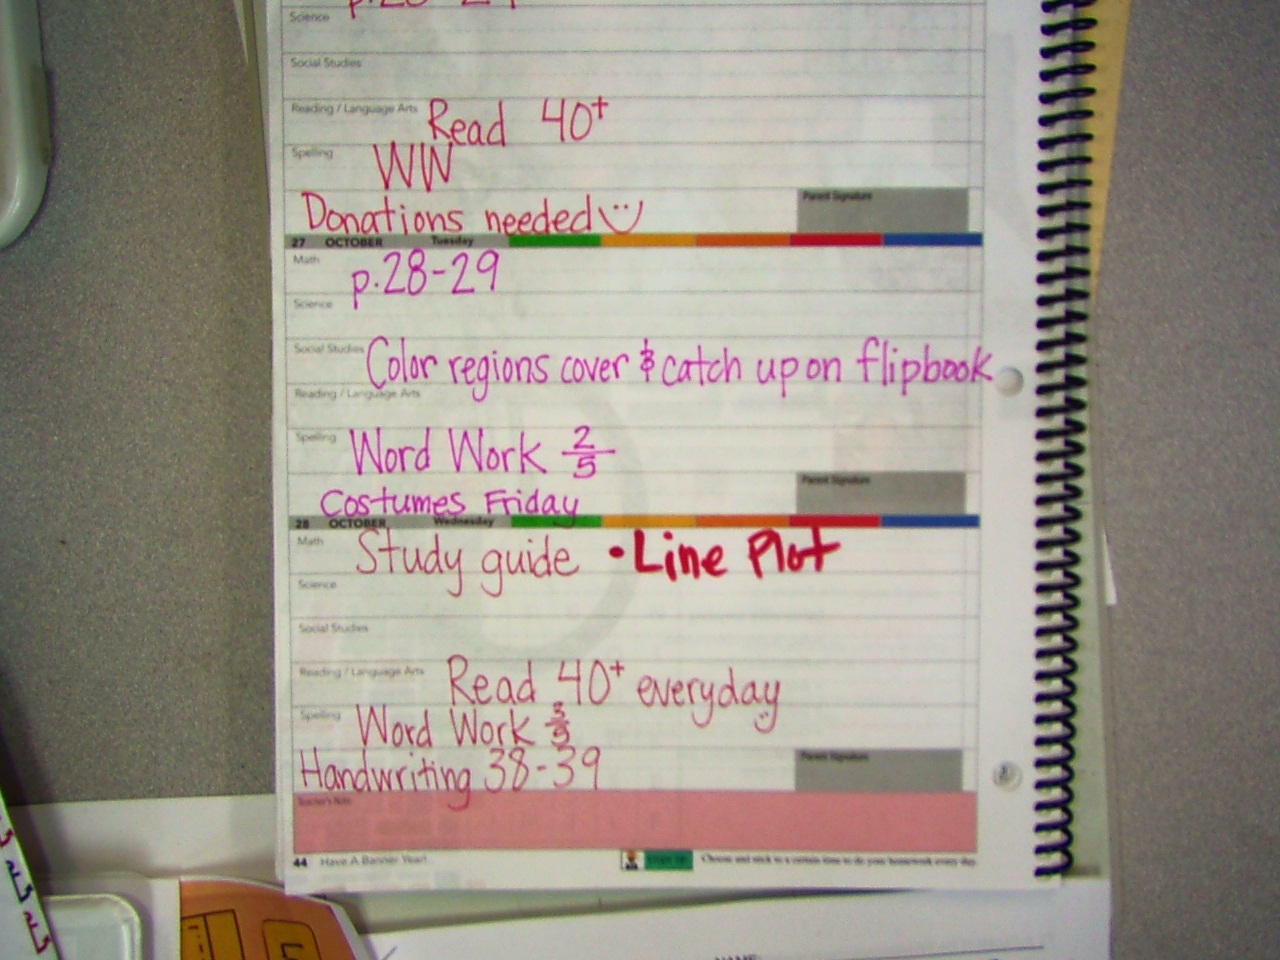 p.28-29
Science
Social Studies
Reading / Language Arts Read 40+
Spelling WW
Donations needed
Parent Signature
27 OCTOBER Tuesday
Math p.28-29
Science
Social Studies Color regions cover & catch up on flipbook
Reading / Language Arts
Spelling Word Work 2/5
Costumes Friday
Parent Signature
28 OCTOBER Wednesday
Math Study guide • Line Plot
Science
Social Studies
Reading / Language Arts Read 40+ everyday
Spelling Word Work 3/5
Handwriting 38-39
Parent Signature
Teacher's Note
44 Have A Banner Year!
Choose and stick to a certain time to do your homework every day.